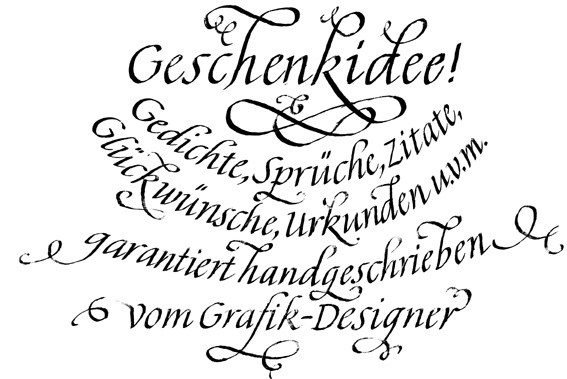 Geschenkidee!
Gedichte, Sprüche, Zitate,
Glückwünsche, Urkunden u.v.m.
garantiert handgeschrieben
vom Grafik-Designer